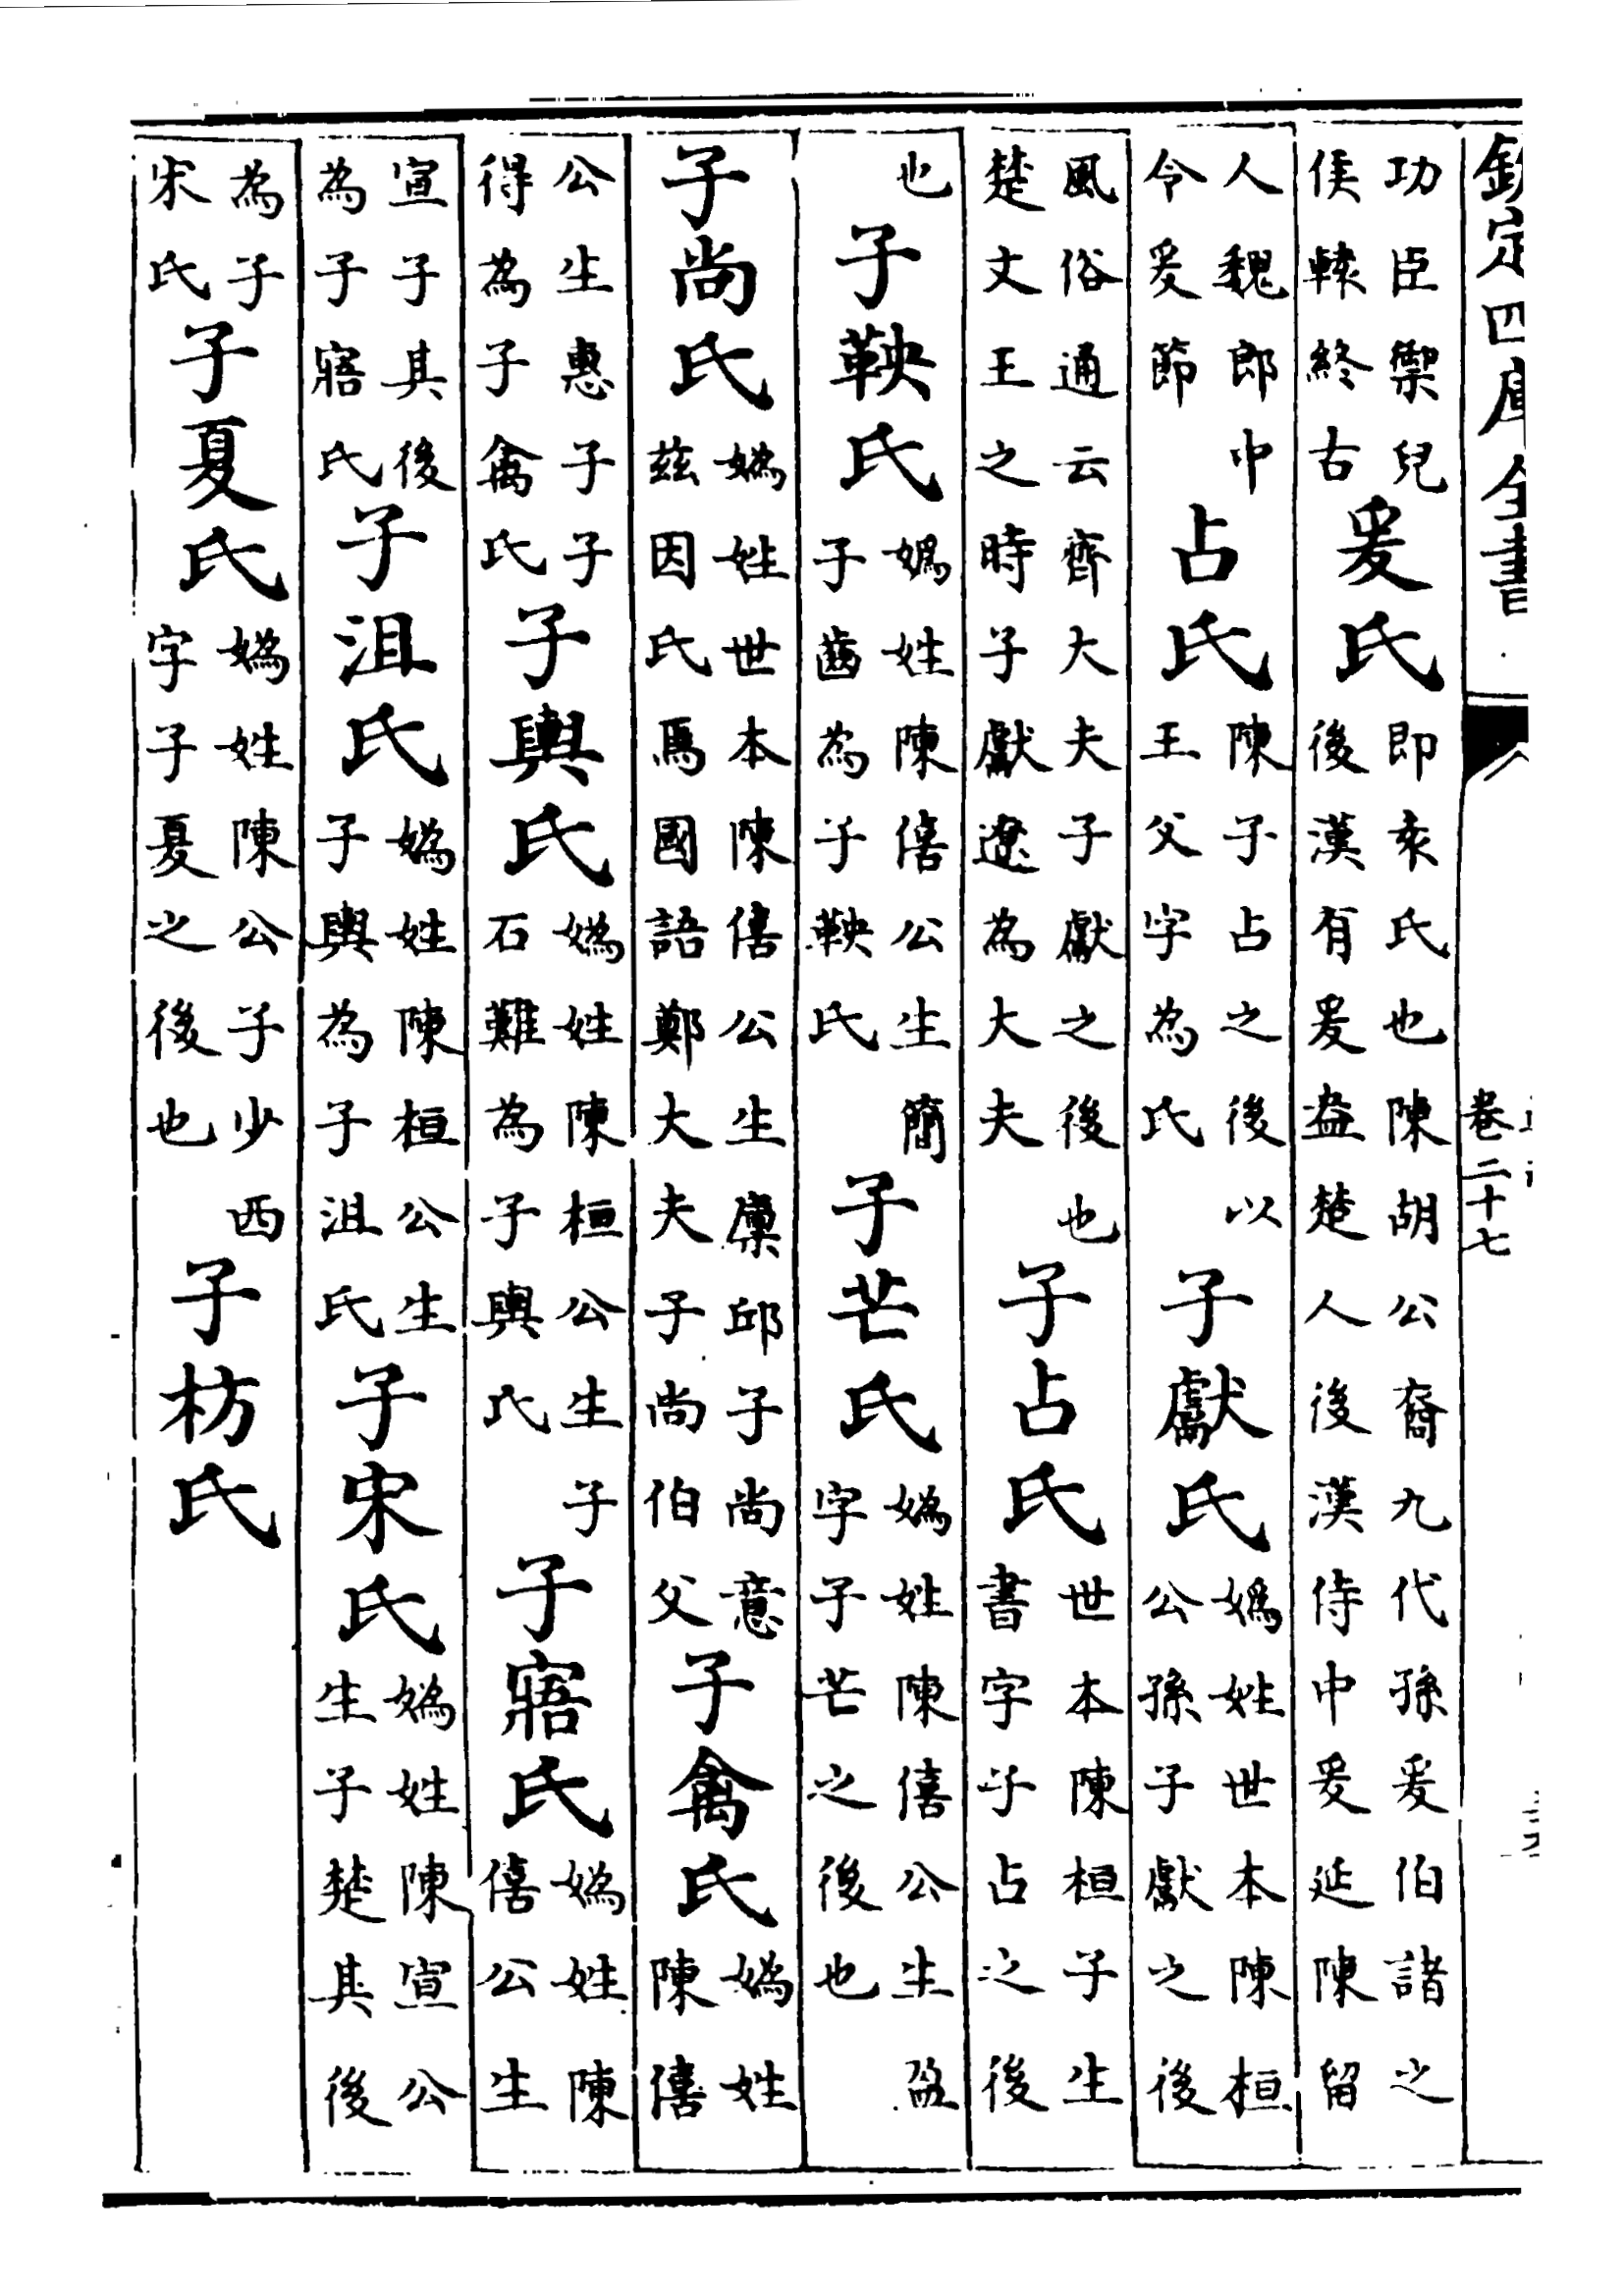 欽定四庫全書 卷二十七
功臣禦兒侯轅終古爰氏即袁氏也陳胡公裔九代孫爰伯諸之後漢有爰盎楚人後漢侍中爰延陳留
人魏郎中令爰節占氏陳子占之後以王父字為氏子獻氏媯姓世本陳桓公孫子獻之後
風俗通云齊大夫子獻之後也楚文王之時子獻遼為大夫子占氏世本陳桓子生書字子占之後
也子鞅氏媯姓陳僖公生簡子齒為子鞅氏子芒氏媯姓陳僖公生盈字子芒之後也
子尚氏媯姓世本陳僖公生廩邱子尚意茲因氏焉國語鄭大夫子尚伯父子禽氏媯姓陳僖
公生惠子子得為子禽氏子輿氏媯姓陳桓公生子石難為子輿氏子寤氏媯姓陳僖公生
宣子其後為子寤氏子沮氏媯姓陳桓公生子輿為子沮氏子宋氏媯姓陳宣公生子楚其後
為子宋氏子夏氏媯姓陳公子少西字子夏之後也子枋氏